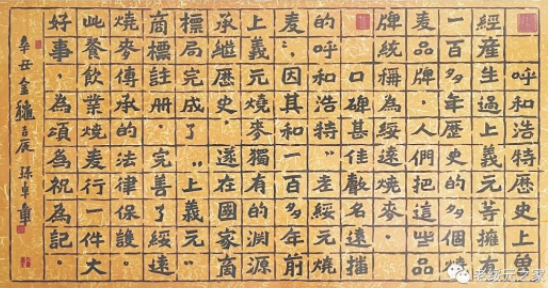 呼和浩特歷史上曾
經產生過上義元等擁有
一百多年歷史的多個燒
麦品牌，人們把這些品
牌統稱為綏遠燒麥。
口碑甚佳聲名遠播
的呼和浩特"老綏元燒
麦"，因其和一百多年前
上義元燒麥獨有的渊源
承继歷史。遂在國家商
標局完成了"上義元"
商標註册。完善了綏遠
燒麥傳承的法律保護。
此餐飲業燒麦行一件大
好事，為頌為祝為記。
辛丑金穗吉辰 孫卓章
老绥元之家